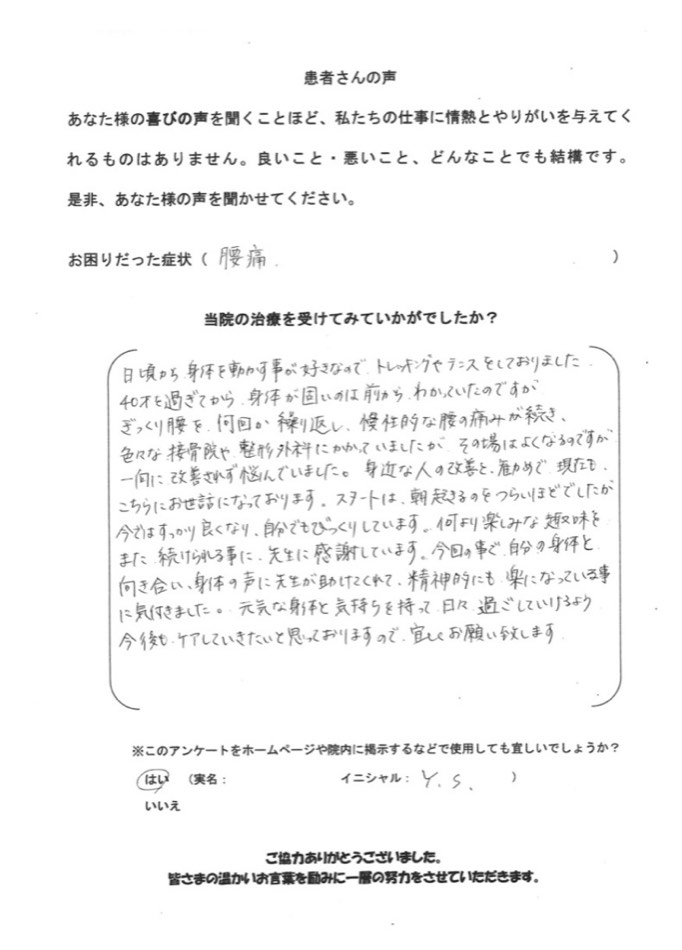 患者さんの声
あなた様の喜びの声を聞くことほど、私たちの仕事に情熱とやりがいを与えてく
れるものはありません。良いこと・悪いこと、どんなことでも結構です。
是非、あなた様の声を聞かせてください。
お困りだった症状（ 腰痛 ）
当院の治療を受けてみていかがでしたか？
日頃から 身体を動かす事が好きなので、トレッキングやテニスをしておりました。
40才を過ぎてから、身体が固いのは前から、わかっていたのですが
ぎっくり腰を、何回か繰り返し、慢性的な腰の痛みが続き、
色々な接骨院や、整形外科にかかっていましたが、その場はよくなるのですが
一向に改善されず悩んでいました。身近な人の改善と、勧めで、現在も、
こちらにお世話になっております。スタートは、朝起きるのもつらいほどでしたが
今ではすっかり良くなり、自分でもびっくりしています。何より楽しみな趣味を
また、続けられる事に、先生に感謝しています。今回の事で、自分の身体と
向き合い、身体の声に先生が助けてくれて、精神的にも、楽になっている事
に気付きました。元気な身体と気持ちを持って、日々、過ごしていけるよう
今後も、ケアしていきたいと思っておりますので、宜しくお願い致します。
※このアンケートをホームページや院内に掲示するなどで使用しても宜しいでしょうか？
はい （実名： イニシャル： Y. S. ）
いいえ
ご協力ありがとうございました。
皆さまの温かいお言葉を励みに一層の努力をさせていただきます。